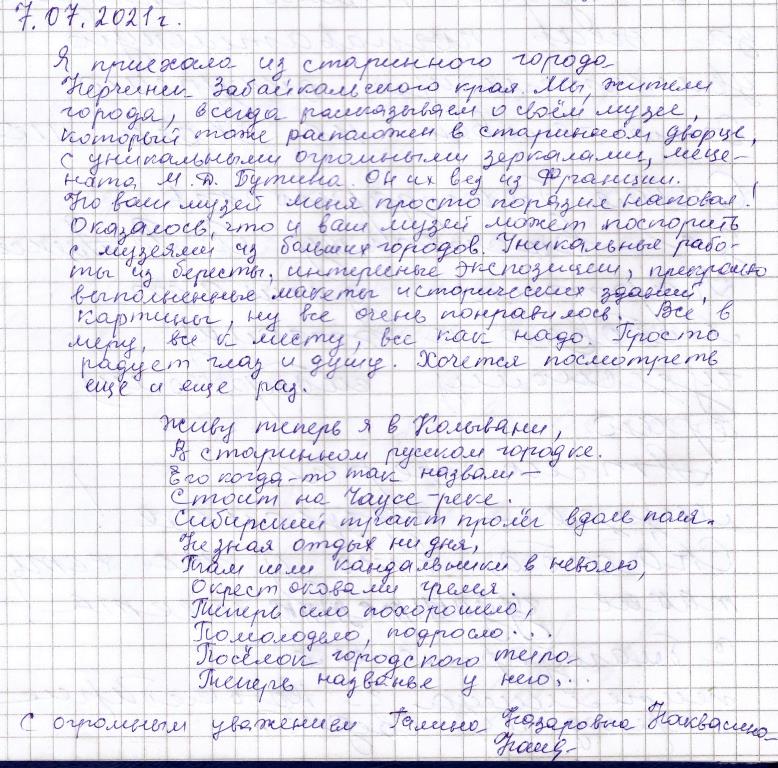 7.07.2021г.
Я приехала из старинного города
Нерчинск Забайкальского края. Мы, жители
города, всегда рассказываем о своём музее,
который тоже расположен в старинном дворце,
с уникальными огромными зеркалами, меце-
ната М.Д. Бутина. Он их вез из Франции.
Но ваш музей меня просто поразил наповал!
Оказалось, что и ваш музей может поспорить
с музеями из больших городов. Уникальные рабо-
ты из бересты, интересные экспозиции, прекрасно
выполненные макеты исторических зданий,
картины, ну все очень понравилось. Все в
меру, все к месту, все как надо. Просто
радует глаз и душу. Хочется посмотреть
еще и еще раз.
Живу теперь я в Колывани,
В старинном русском городке.
Его когда-то так назвали –
Стоит на Чаусе-реке.
Сибирский тракт пролёг вдоль поля.
Не зная отдых ни дня,
Там шли кандальники в неволю,
Окрест оковами гремя.
Теперь село похорошело,
Помолодело, подросло...
Посёлок городского типа
Теперь названье у него...
С огромным уважением Галина Назаровна Наквасина